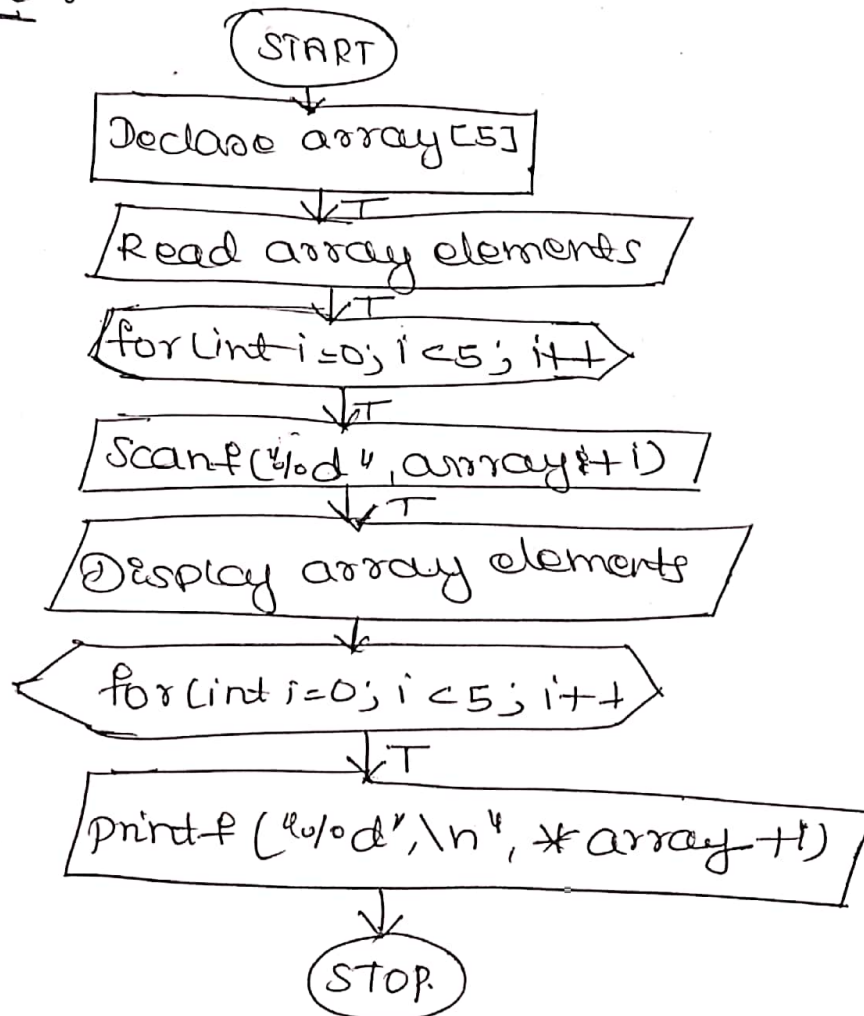 START
Declare array[5]
T
Read array elements
T
for(int i=0; i<5; i++
T
Scanf("%d", array+i)
T
Display array elements
for(int i=0; i<5; i++
T
printf("%d",\n", *array+i)
STOP.